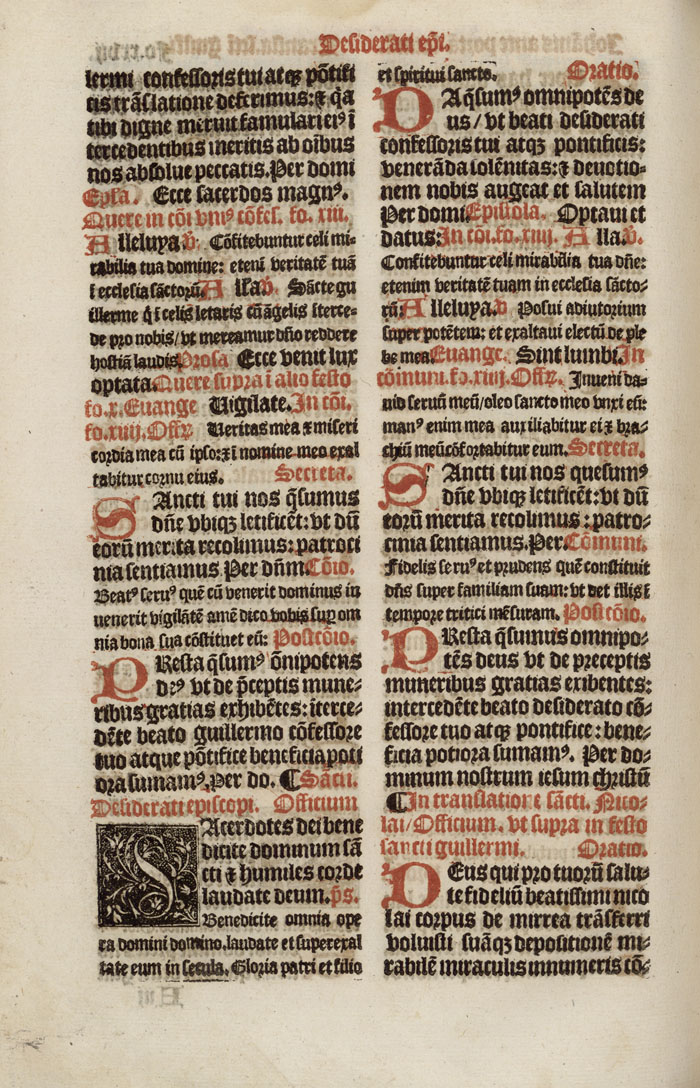 Desiderati ep̄i.
lermi confessoris tui atqꝫ põtifi
cis trãslatione deferimus: ⁊ q̃a
tibi digne meruit famulari eiꝰ ĩ
tercedentibus meritis ab oĩbus
nos absolue peccatis. Per domi
Epl̃a. Ecce sacerdos magnꝰ.
Quere in cõi vniꝰ cõfes. fo. xiii.
Alleluya ℣. Cõfitebuntur celi mi-
rabilia tua domine: etenĩ veritatẽ tuã
ĩ ecclesia sãctorũ. Alľa ℣. Sãcte gu
illerme q̃ ĩ celis letaris cũ ãgelis ĩterce-
de pro nobis / vt mereamur dño reddere
hostiã laudis. Prosa Ecce venit lux
optata. Quere supra ĩ alio festo
fo. x. Euange Vigilate. In cõi.
fo. xiiij. Offꝝ Veritas mea ⁊ miseri
cordia mea cũ ipso: ⁊ ĩ nomine meo exal
tabitur cornu eius. Secreta.
SAncti tui nos q̃sumus
dñe vbiqꝫ letificẽt: vt dũ
eorũ merita recolimus: patroci
nia sentiamus. Per dñm. Cõio.
Beatꝰ seruꝰ quẽ cũ venerit dominus in
uenerit vigilãtẽ amẽ dico vobis suꝑ om
nia bona sua cõstituet eũ: Postcõio.
PResta q̃sumꝰ õnipotens
deꝰ vt de p̃ceptis mune-
ribus gratias exhibẽtes: ĩterce-
dẽte beato guillermo cõfessore
tuo atque põtifice beneficia poti
ora sumamꝰ. Per do. ¶ Sãcti.
Desiderati episcopi. Officium
SAcerdotes dei bene
dicite dominum sã
cti ⁊ humiles corde
laudate deum. p̃s.
Benedicite omnia ope
ra domini domino. laudate et superexal
tate eum in secula. Gloria patri et filio
et spiritui sancto. Oratio.
DA q̃sumꝰ omnipotẽs de
us / vt beati desiderati
confessoris tui atqꝫ pontificis:
venerãda solẽnitas: ⁊ deuotio-
nem nobis augeat et salutem
Per domi Epistola. Optaui et
datus: In cõi. fo. xiiij. Alľa. ℣.
Confitebuntur celi mirabilia tua dñe:
etenim veritatẽ tuam in ecclesia sãcto-
rũ: Alleluya. ℣ Posui adiutorium
super potẽtem: et exaltaui electũ de ple
be mea. Euange. Sint lumbi. In
cõmuni. fo. xiiij. Offꝝ. Inueni da-
uid seruũ meũ / oleo sancto meo vnxi eũ:
manꝰ enim mea auxiliabitur ei ⁊ bra-
chiũ meũ cõfortabitur eum. Secreta.
SAncti tui nos quesumꝰ
dñe vbiqꝫ letificẽt: vt dũ
eorũ merita recolimus: patro-
cinia sentiamus. Per. Cõmuni.
Fidelis seruꝰ et prudens quẽ constituit
dñs super familiam suam: vt det illis ĩ
tempore tritici mẽsuram. Postcõio.
PResta q̃sumus omnipo-
tẽs deus vt de preceptis
muneribus gratias exibentes:
intercedẽte beato desiderato cõ-
fessore tuo atque pontifice: bene-
ficia potiora sumamꝰ. Per do-
minum nostrum iesum christũ
¶ In translatione sãcti. Nico-
lai / Officium. vt supra in festo
sancti guillermi. Oratio.
DEus qui pro tuorũ salu-
te fideliũ beatissimi nico
lai corpus de mirrea trãsferri
voluisti suãqꝫ depositionẽ mi-
rabilẽ miraculis innumeris cõ-